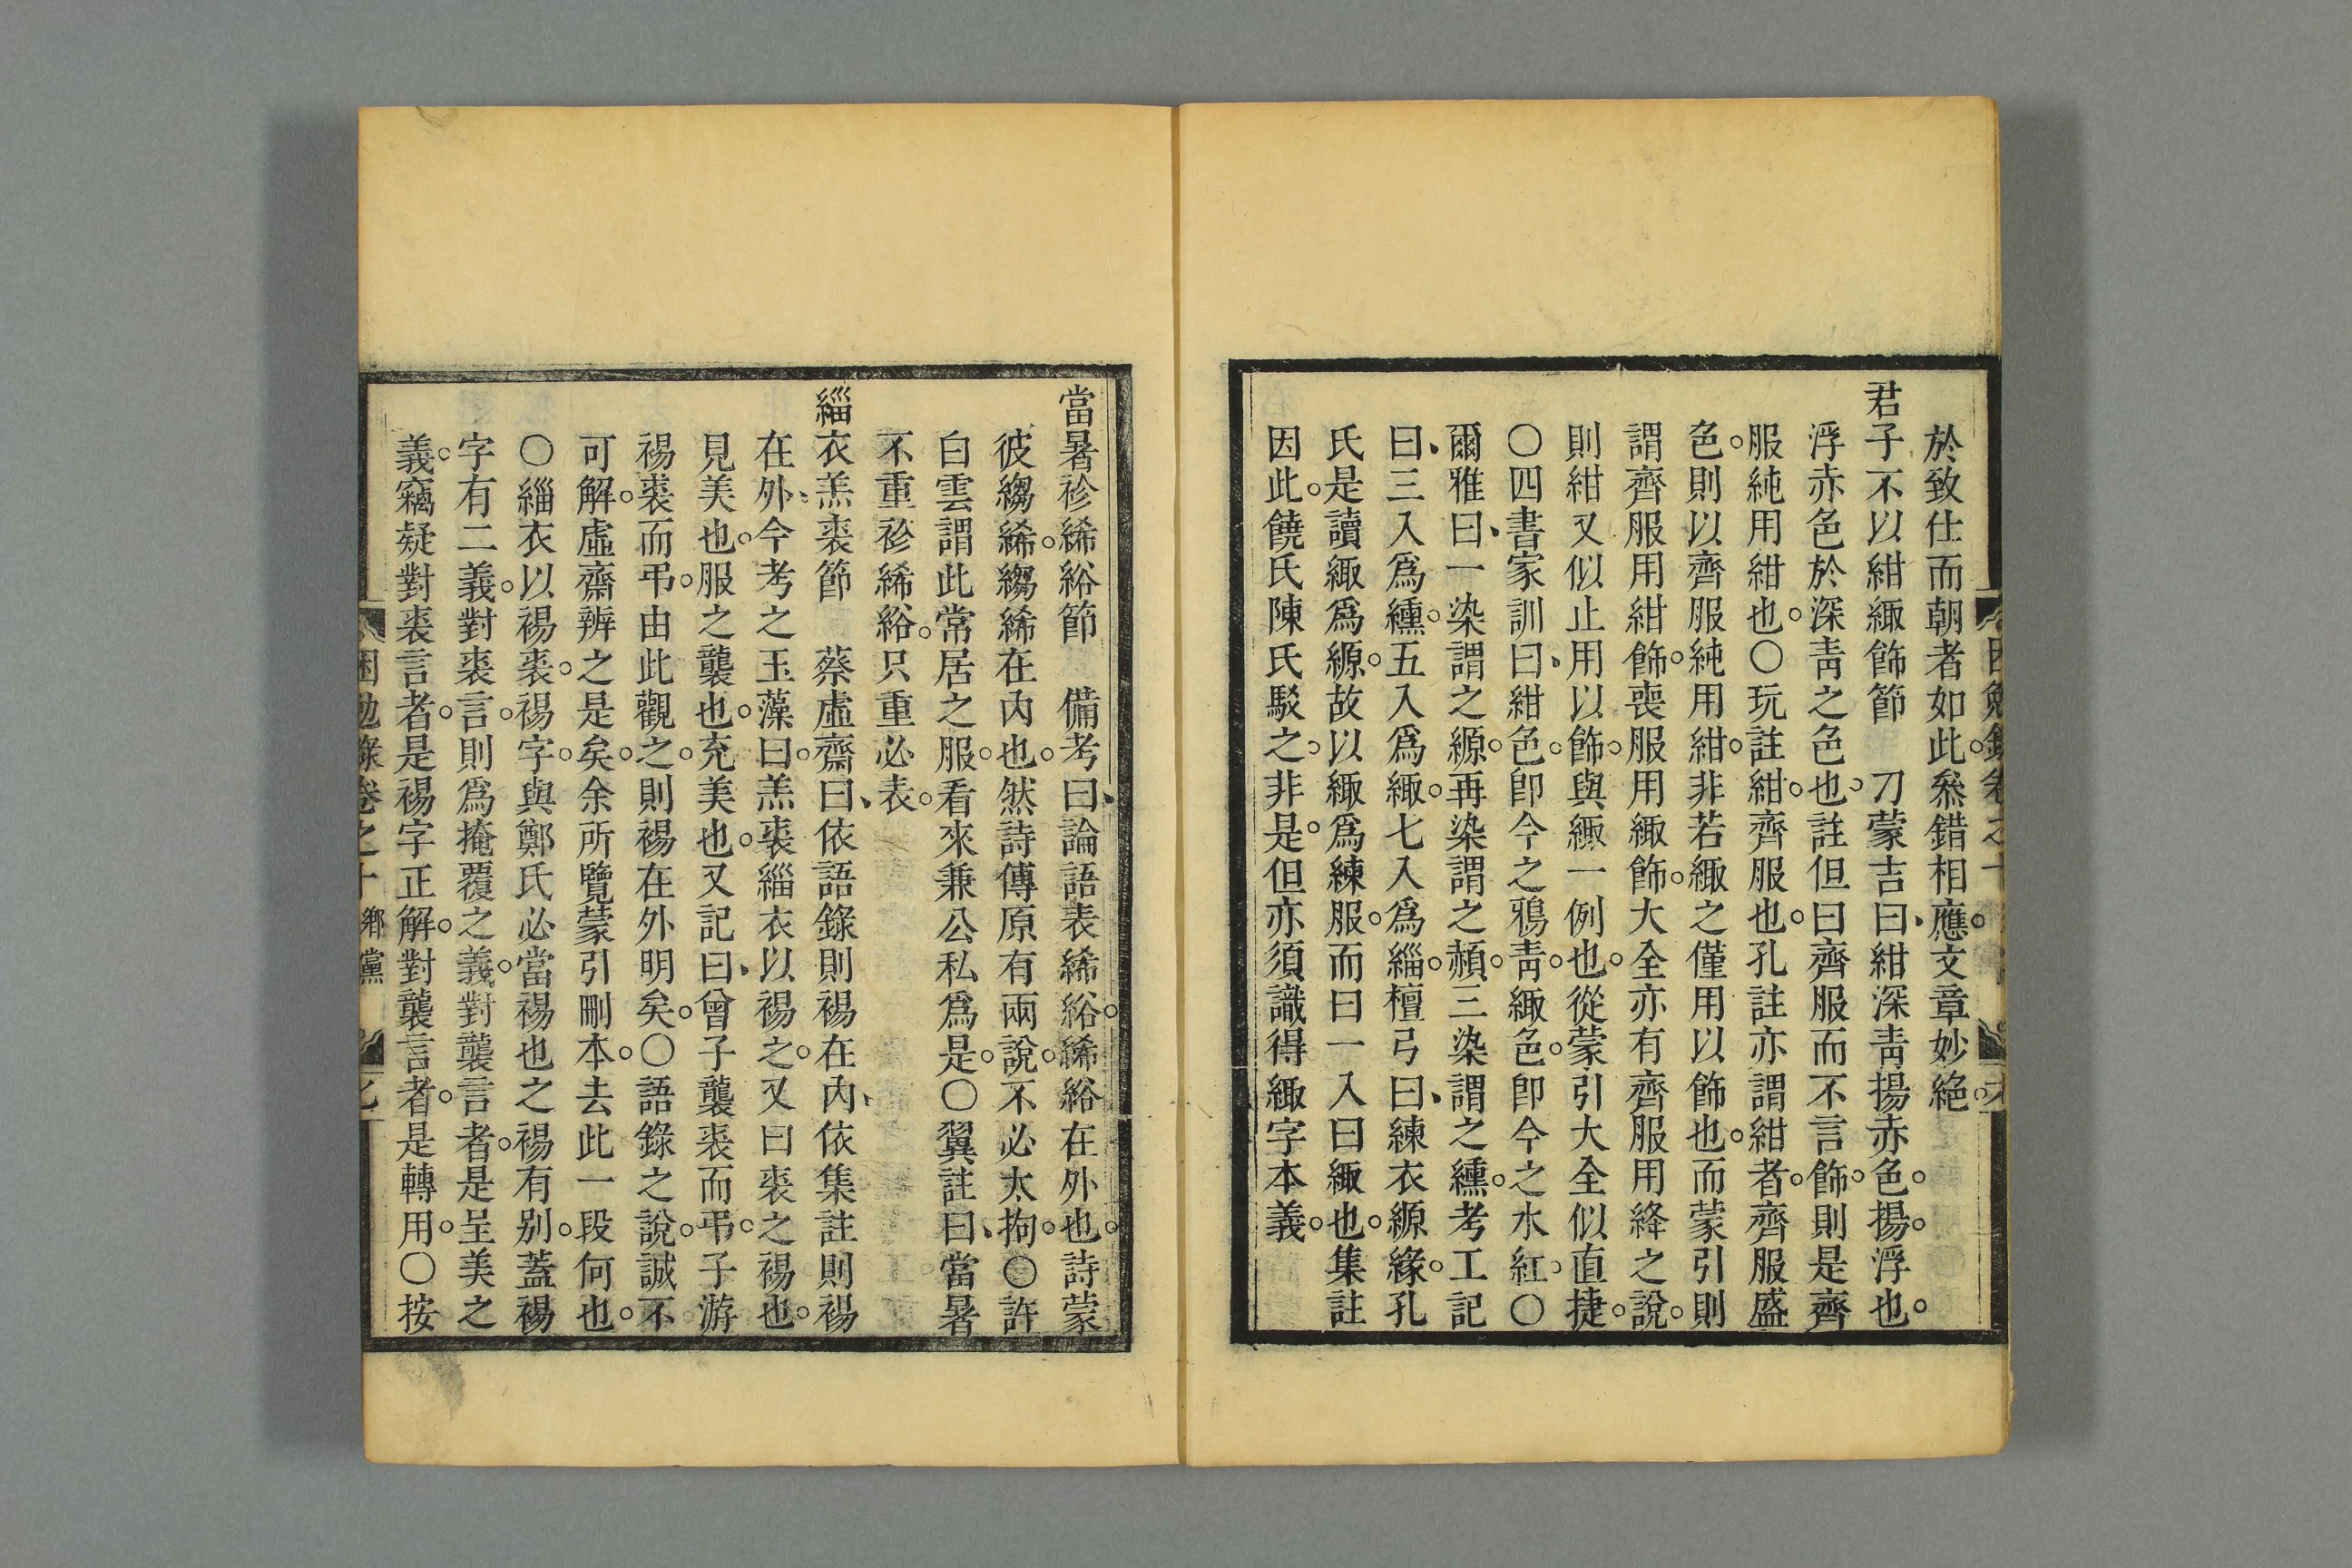 於致仕而朝者如此。叅錯相應。文章妙絕。
君子不以紺緅飾節　刀蒙吉曰、紺深靑揚赤色。揚。浮也。
浮赤色於深靑之色也。註但曰齊服而不言飾。則是齊
服純用紺也。○玩註紺。齊服也。孔註亦謂紺者。齊服盛
色。則以齊服純用紺。非若緅之僅用以飾也。而蒙引則
謂齊服用紺飾。喪服用緅飾。大全亦有齊服用絳之說。
則紺又似止用以飾。與緅一例也。從蒙引大全似直捷。
○四書家訓曰、紺色。卽今之鴉靑。緅色。卽今之水紅。○
爾雅曰、一染謂之縓。再染謂之赬。三染謂之纁。考工記
曰、三入爲纁。五入爲緅。七入爲緇。檀弓曰、練衣縓緣。孔
氏是讀緅爲縓。故以緅爲練服。而曰一入曰緅也。集註
因此。饒氏陳氏駁之。非是。但亦須識得緅字本義。
當暑袗絺綌節　備考曰、論語表絺綌。絺綌在外也。詩蒙
彼縐絺。縐絺在內也。然詩傳原有兩說。不必太拘。○許
白雲謂此常居之服。看來兼公私爲是。○翼註曰、當暑
不重袗絺綌。只重必表。
緇衣羔裘節　蔡虛齋曰、依語錄則裼在內、依集註則裼
在外、今考之玉藻曰。羔裘緇衣以裼之。又曰裘之裼也。
見美也。服之襲也。充美也。又記曰、曾子襲裘而弔。子游
裼裘而弔。由此觀之。則裼在外明矣。○語錄之說。誠不
可解。虛齋辨之是矣。余所覽蒙引刪本。去此一段何也。
○緇衣以裼裘。裼字。與鄭氏必當裼也之裼有別。蓋裼
字有二義。對裘言。則爲掩覆之義。對襲言者。是呈美之
義。竊疑對裘言者。是裼字正解。對襲言者。是轉用。○按
困勉錄卷之十　鄉黨